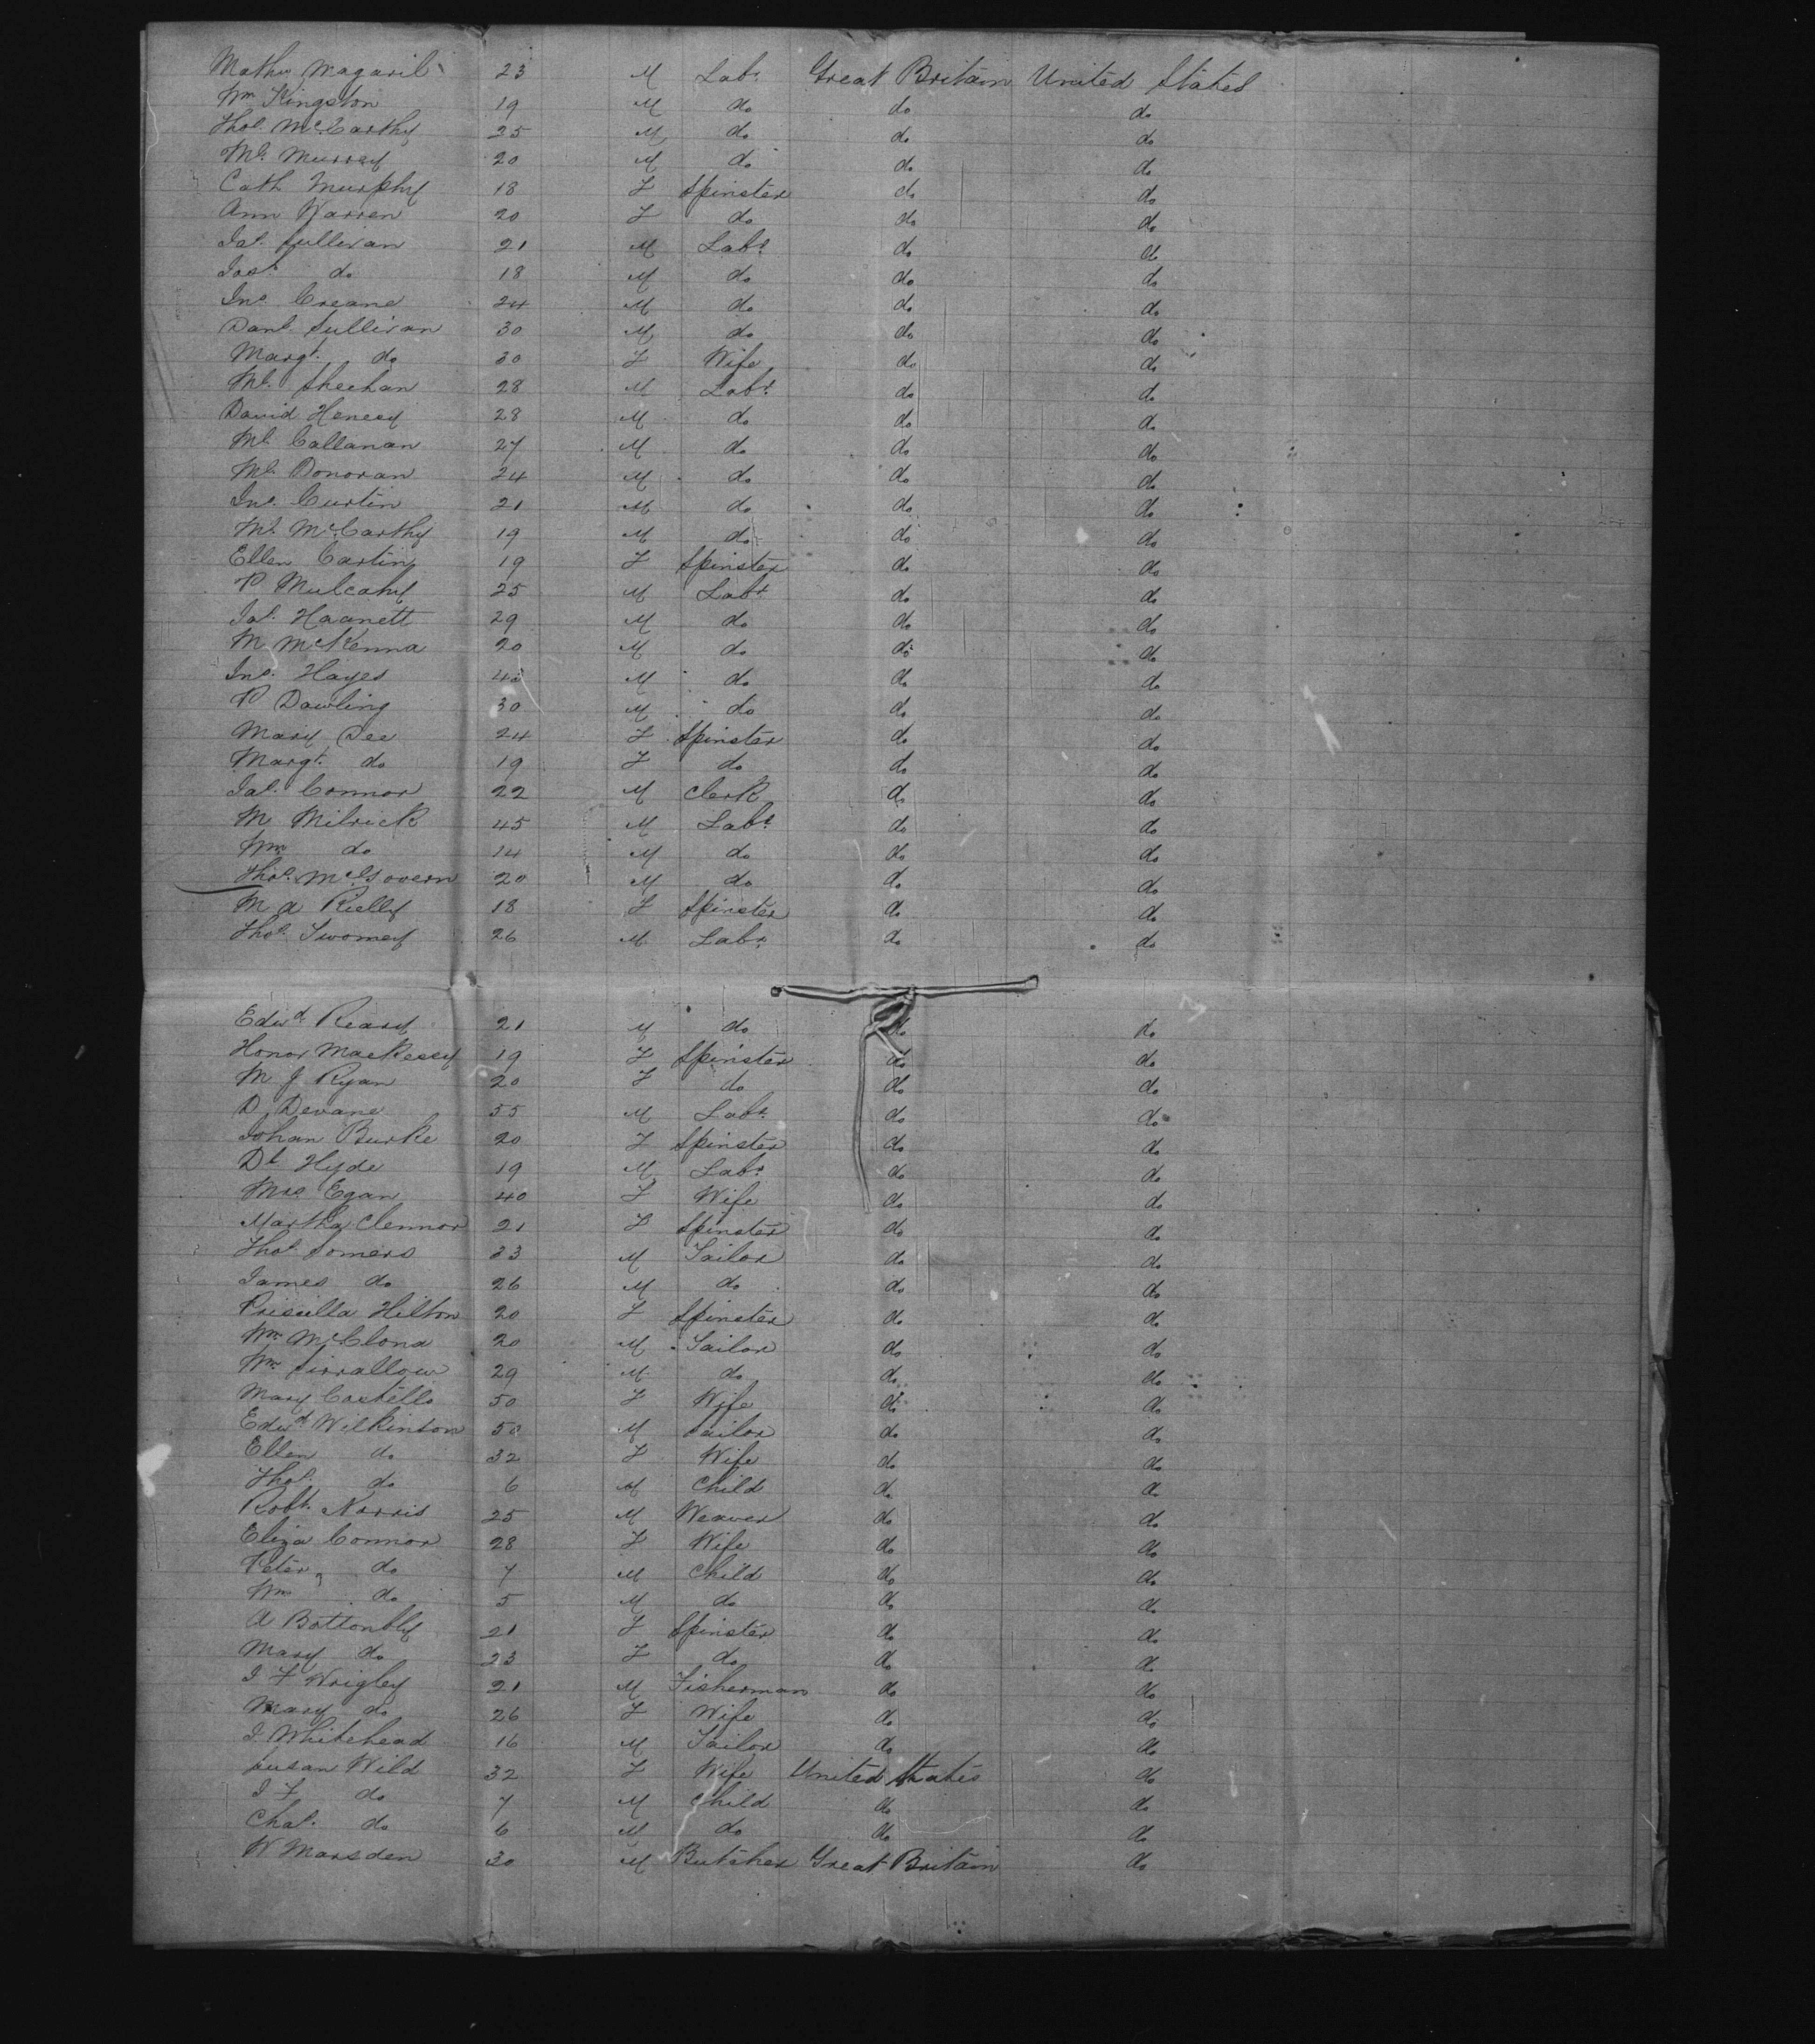 Mathw Magaril 23 M Labr Great Britain United States
Wm Kingston 19 M do do do
Thos McCarthy 25 M do do do
Ml Murray 20 M do do do
Cath Murphy 18 F Spinster do do
Ann Warren 20 F do do do
Jas Sullivan 21 M Labr do do
Josh do 18 M do do do
Jno Creane 24 M do do do
Danl Sullivan 30 M do do do
Margt do 30 F Wife do do
Ml Sheehan 28 M Labr do do
David Henesy 28 M do do do
Ml Callanan 27 M do do do
Ml Donovan 24 M do do do
Jno Curtin 21 M do do do
Ml McCarthy 19 M do do do
Ellen Cartin 19 F Spinster do do
P Mulcahy 25 M Labr do do
Jas Haanett 29 M do do do
M McKenna 20 M do do do
Jno Hayes M do do do
P Dowling 30 M do do do
Mary Dee 24 F Spinster do do
Margt do 19 F do do do
Jas Connor 22 M Clerk do do
M Milrick 45 M Labr do do
Wm do 14 M do do do
Thos McGovern 20 M do do do
M A Rielly 18 F Spinster do do
Thos Twomey 26 M Labr do do
Edwd Reary 21 M do do do
Honor Mackessy 19 F Spinster do do
M J Ryan 20 F do do do
D Devane 55 M Labr do do
Johan Burke 20 F Spinster do do
Dl Hyde 19 M Labr do do
Mrs Egan 40 F Wife do do
Martha Clennor 21 F Spinster do do
Thos Somers 33 M Tailor do do
James do 26 M do do do
Priscilla Hilton 20 F Spinster do do
Wm McClona 20 M Tailor do do
Wm 29 M do do do
Mary Costello 50 F Wife do do
Edwd Wilkinson 50 M Sailor do do
Ellen do 32 F Wife do do
Thos do 6 M Child do do
Robt Norris 25 M Weaver do do
Eliza Connor 28 F Wife do do
Peter do 7 M Child do do
Wm do 5 M do do do
A Bottonbly 21 F Spinster do do
Mary do 23 F do do do
J F Wrigley 21 M Fisherman do do
Mary do 26 F Wife do do
J Whitehead 16 M Tailor do do
Susan Wild 32 F Wife United States do
J F do 7 M Child do do
Chas do 6 M do do do
W Marsden 30 M Butcher Great Britain do